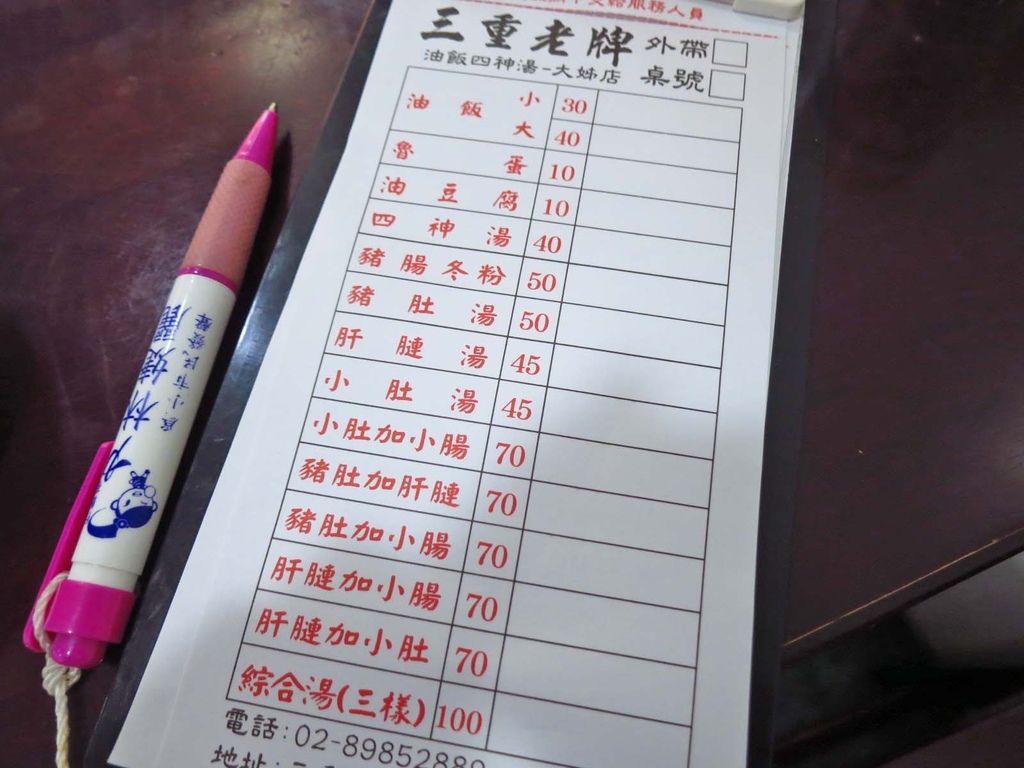 交給服務人員
三重老牌 外帶
油飯四神湯-大姊店 桌號
油飯 小 30
大 40
魯蛋 10
油豆腐 10
四神湯 40
豬腸冬粉 50
豬肚湯 50
肝腱湯 45
小肚湯 45
小肚加小腸 70
豬肚加肝腱 70
豬肚加小腸 70
肝腱加小腸 70
肝腱加小肚 70
綜合湯(三樣) 100
電話:02-89852889
地址: